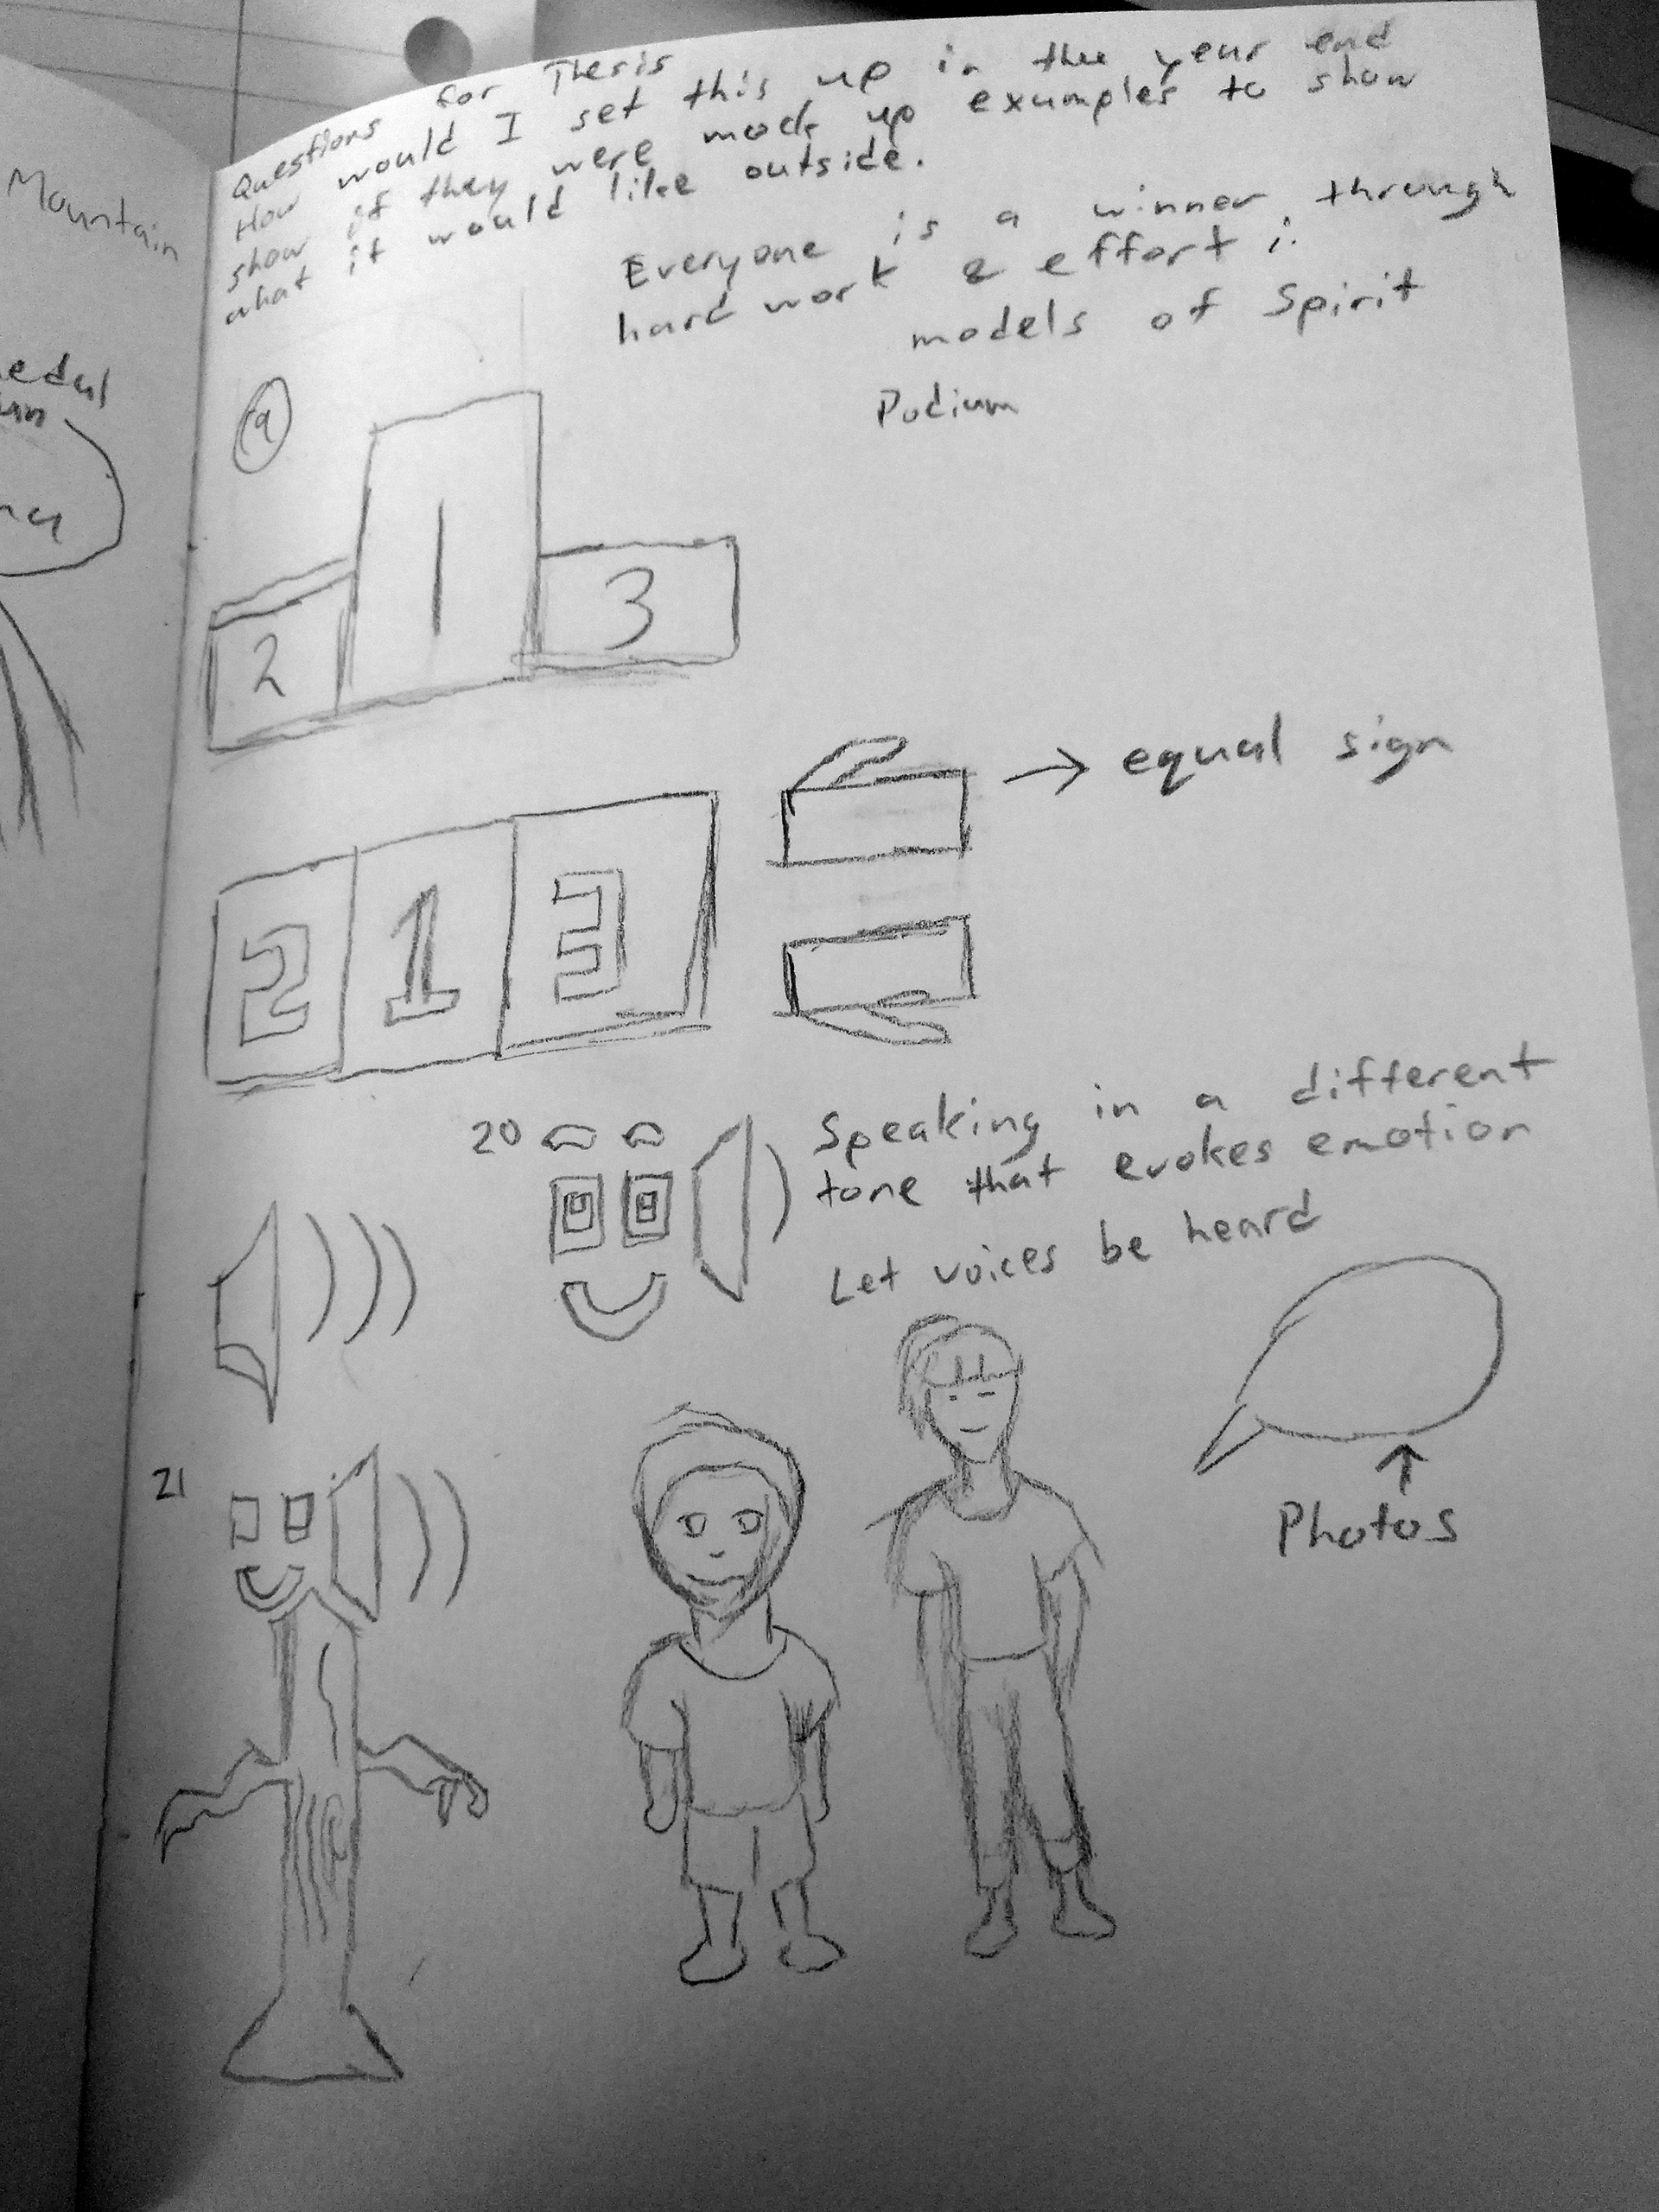 Mountain
Questions for Thesis
How would I set this up in the year end
show if they were mock up examples to show
what it would like outside.
Everyone is a winner through
hard work & effort
models of Spirit
Podium
2
1
3
2 1 3
→ equal sign
20
Speaking in a different
tone that evokes emotion
Let voices be heard
21
Photos